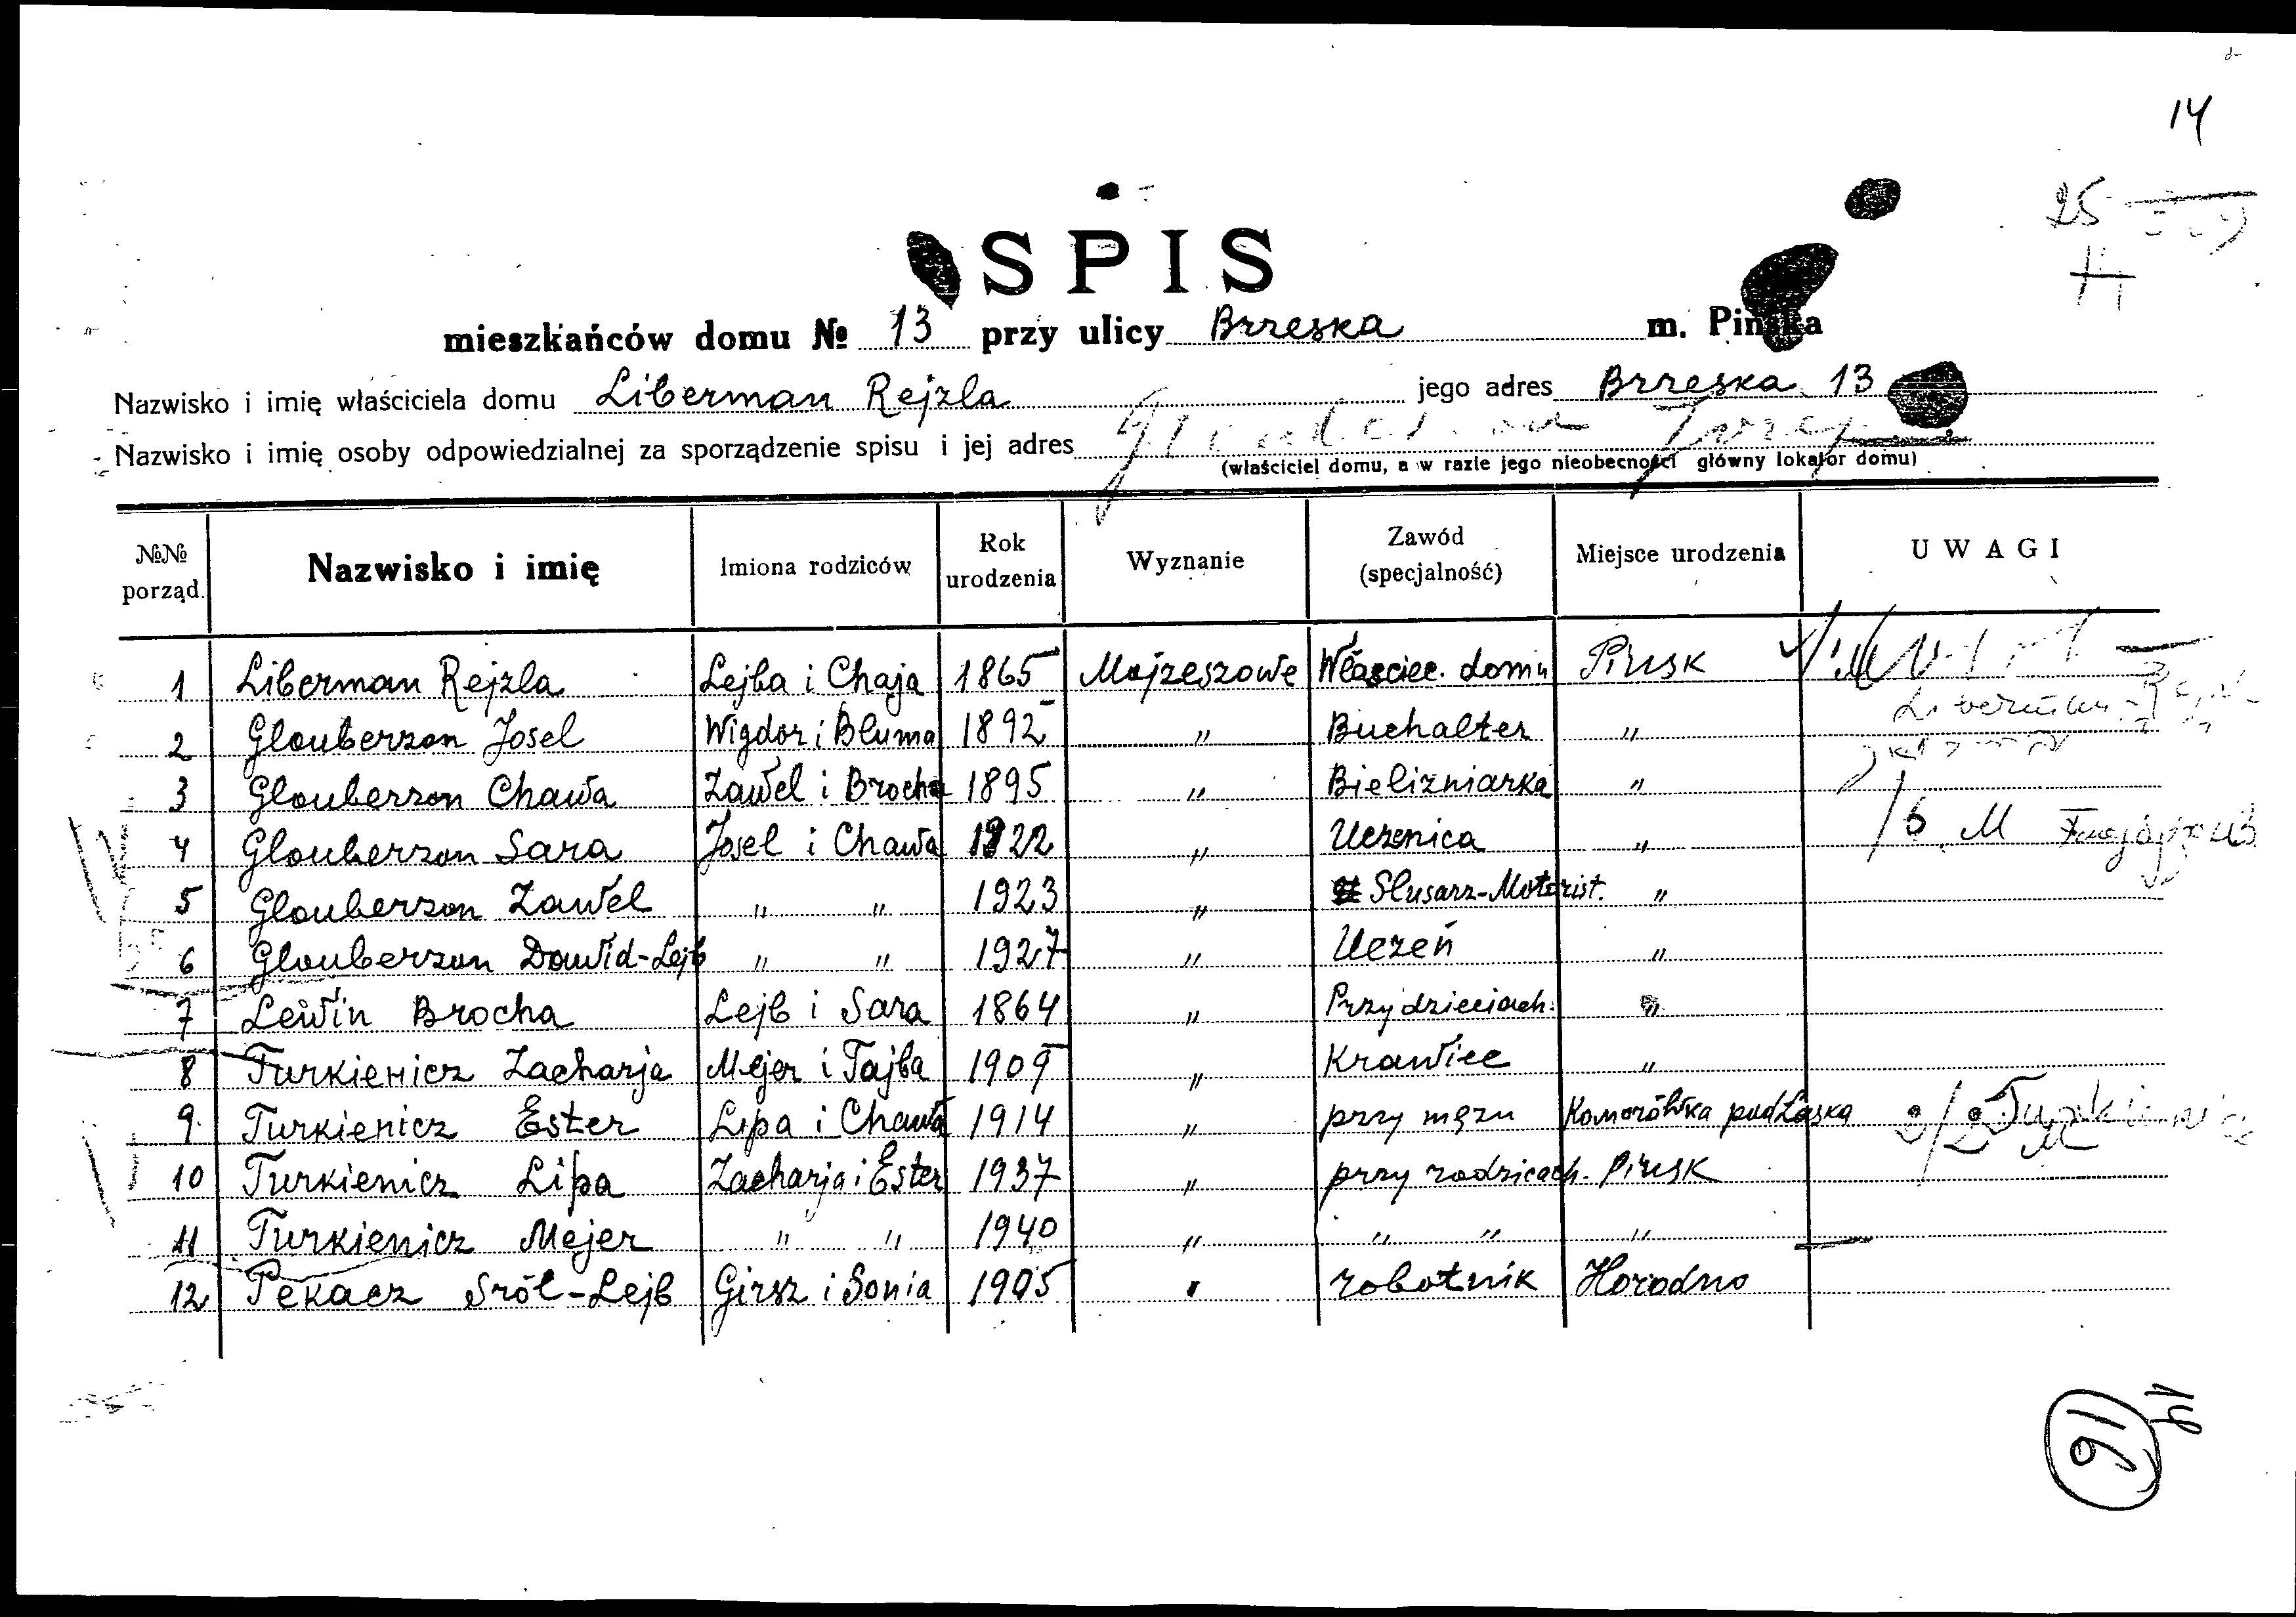 14
25
SPIS
mieszkańców domu № 13 przy ulicy Brzeska m. Pińska
Nazwisko i imię właściciela domu Liberman Rejzla jego adres Brzeska 13
Nazwisko i imię osoby odpowiedzialnej za sporządzenie spisu i jej adres
(właściciel domu, a w razie jego nieobecności główny lokator domu)
№№ porząd. Nazwisko i imię Imiona rodziców Rok urodzenia Wyznanie Zawód (specjalność) Miejsce urodzenia UWAGI
1 Liberman Rejzla Lejba i Chaja 1865 Mojzeszowe Właściec. domu Pinsk
2 Glouberzon Josel Wigdor i Bluma 1892 " Buchalter "
3 Glouberzon Chawa Zawel i Brocha 1895 " Bielizniarka "
4 Glouberzon Sara Josel i Chawa 1922 " Uczenica " 6 M
5 Glouberzon Zawel " " 1923 " Slusarz-Motorist. "
6 Glouberzon Dawid-Lejb " " 1927 " Uczeń "
7 Lewin Brocha Lejb i Sara 1864 " Przy dzieciach. "
8 Turkienicz Zacharja Mejer i Tajba 1909 " Krawiec "
9 Turkienicz Ester Lipa i Chawa 1914 " przy mężu Komorówka podLaska 2/2 Turkienicz
10 Turkienicz Lipa Zacharja i Ester 1937 " przy rodzicach. Pinsk
11 Turkienicz Mejer " " 1940 " " " "
12 Pekacz Sról-Lejb Girsz i Sonia 1905 " robotnik Horodno
14
16